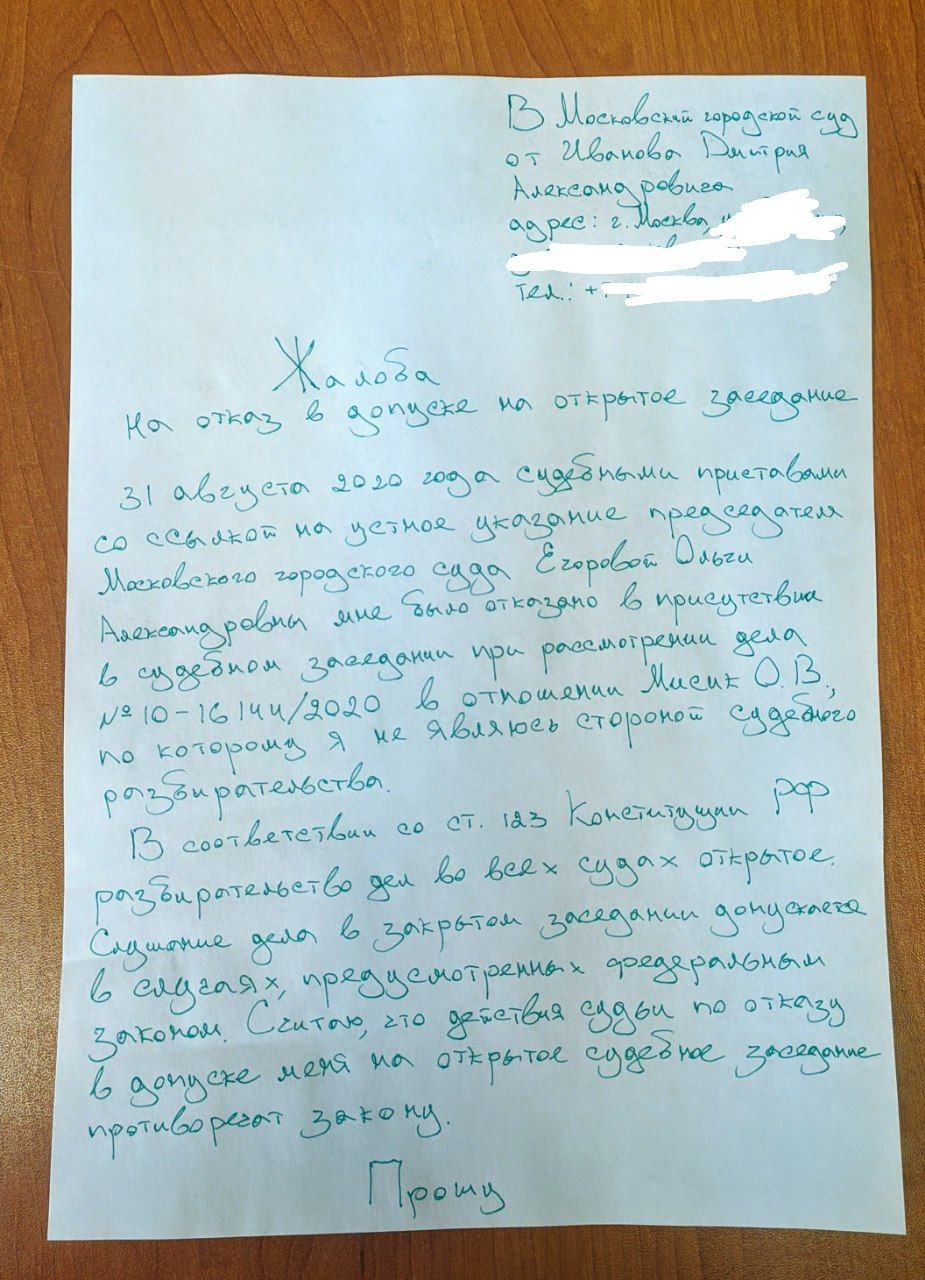 В Московский городской суд
от Иванова Дмитрия
Александровича
адрес: г. Москва,
тел.: +
Жалоба
на отказ в допуске на открытое заседание
31 августа 2020 года судебными приставами
со ссылкой на устное указание председателя
Московского городского суда Егоровой Ольги
Александровны мне было отказано в присутствии
в судебном заседании при рассмотрении дела
№ 10-16144/2020 в отношении Мисик О.В.,
по которому я не являюсь стороной судебного
разбирательства.
В соответствии со ст. 123 Конституции РФ
разбирательство дел во всех судах открытое.
Слушание дела в закрытом заседании допускается
в случаях, предусмотренных федеральным
законом. Считаю, что действия судьи по отказу
в допуске меня на открытое судебное заседание
противоречат закону.
Прошу